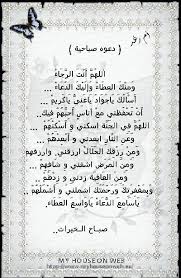 { دعوه صباحية }
اللهم أنت الرجاء
ومنك العطاء وإليك الدعاء ..
أسألك ياجواد ياغني ياكريم ..
أن تحفظني مع أناس أحبهم فيك ..
اللهم في الجنة اسكني و أسكنهم ..
و من رزقك الحلال ارزقني وارزقهم
و من المرض اشفني و شافهم ..
و من العافية زدني و زدهم ..
و بمغفرتك ورحمتك اشملني و أشملهم ..
ياسامع الدعاء ياواسع العطاء..
صباح الخيرات..
MY HOUSE ON WEB